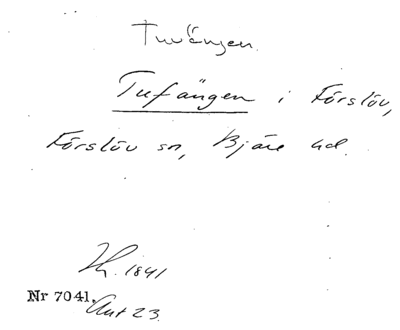 Tuvängen.
Tufängen i Förslöv,
Förslöv sn, Bjäre hd.
Lh. 1841
Nr 7041. Akt 23.